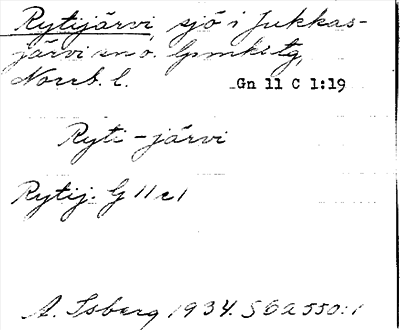 Rytijärvi, sjö i Jukkas-
järvi sn o. lpmks tg,
Norrb. l.
Gn 11 C 1:19
Ryti-järvi
Rytij. G 11 c 1
A. Isberg 1934. S 62 550:1